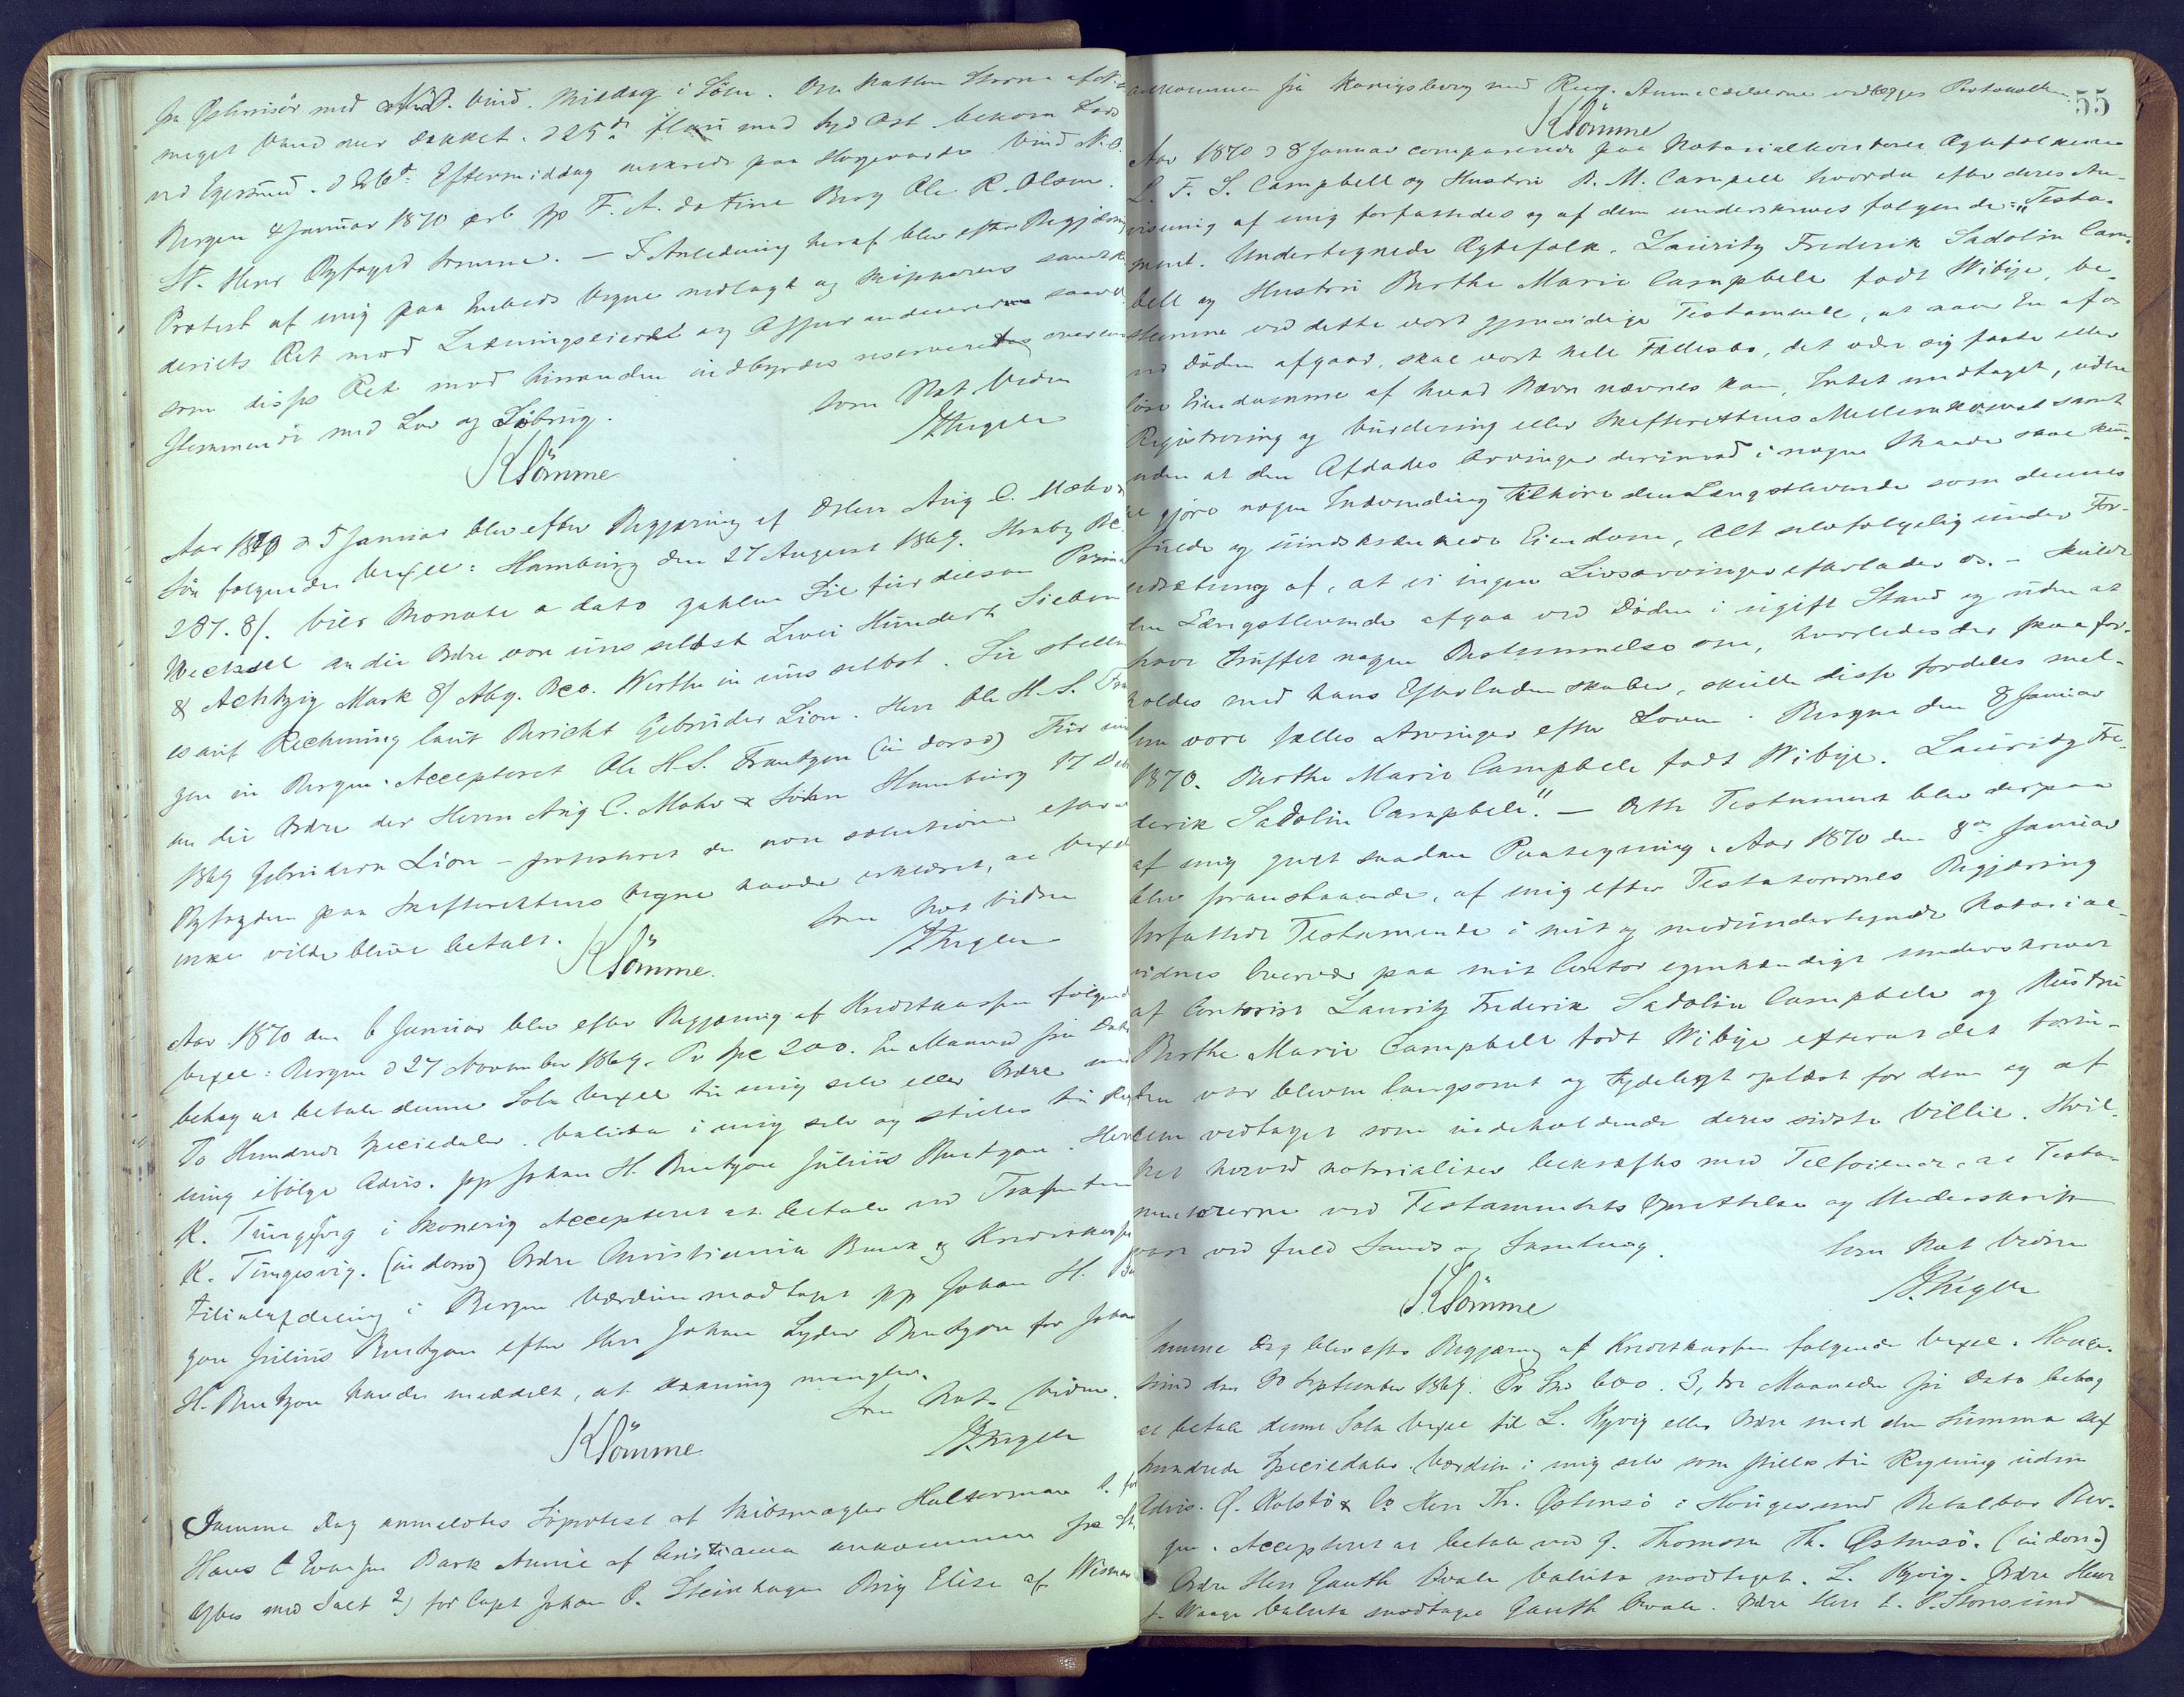 fra Østerriisör med Vind. Middag i Söen. Om Natten Storm af
meget Vand over Dækket. D 25de med Syd Ost bekom Lods
ved Egersund. D 26de Eftermiddag ankrede paa Vind N.O.
Bergen 4 Januar 1870 pp F. A. Brog Ole R. Olsen.
St. Herr Byfoged Krumme. – I Anledning heraf blev efter Begjæring
Protest af mig paa Embeds Vegne nedlagt og Skipperens samt
deriets Ret mod Ladningseiere og Assurandeurerne saavel
som disses Ret mod hinanden indbyrdes reserveret overens
stemmende med Lov og Söbrug.
Som Not. Vidne
Klömme
Aar 1870 d 5 Januar blev efter Begjæring af DHerr Aug C. Mohr &
Sön følgende Vexel: Hamburg den 27 August 1869. Hmbg Bco
287. 8/. Vier Monate a dato zahlen Sie für diesen Prima
Wechsel an die Ordre von uns selbst Zwei Hundert Sieben
& Achtzig Mark 8/ Hbg. Bco. Werth in uns selbst. Sie stellen
es auf Rechnung laut Bericht Gebrüder Lion. Herr Ole H. S. Frant
zen in Bergen. Accepteret Ole H.S. Frantzen (in dorso) Für uns
an die Ordre der Herrn Aug C. Mohr & Sohn Hamburg 17 Dec
1869 Gebrüdern Lion – protesteret de non solutione efterat
Byfogden paa Skifterettens Vegne havde erklæret, at Vexel
ikke vilde blive betalt.
Som Not Vidne
Klömme.
Aar 1870 den 6 Januar blev efter Begjæring af Kreditkassen følgende
Vexel: Bergen d 27 November 1869. Pr Spe 200. En Maaned fra Dato
behag at betale denne Sola Vexel til mig selv eller Ordre med
To Hundrede Speciedaler. Valuta i mig selv og stilles til Reg
ning ifölge Advis. pp Johan H. Bentzon Julius Bentzon. Herr
K. Tungesvig i Skonevig Accepteret at betale ved
K. Tungesvig. (in dorso) Ordre Christiania Bank og Kreditkasses
Filialafdeling i Bergen Værdien modtaget pp Johan H. Bent
zon Julius Bentzon efter Herr Johan Lyder Bentzon for Johan
H. Bentzon havde meddelt, at Dækning mangler.
Som Not. Vidne.
Klömme
Samme Dag anmeldtes Söprotest af Skibsmægler Halterman 1, for
Hans C Evensen Bark Annie af Christiania ankommen fra St.
Ybes med Salt 2) for Capt Johan P. Steinhagen Brig Elise af Wismar
55
ankommen fra Kønigsberg med Rug. Anmeldelserne vedlægges Protokollen.
Klömme
Aar 1870 d 8 Januar comparerede paa Notarialkontoret Ægtefolkene
L. F. S. Campbell og Hustru B. M. Campell hvorda efter deres An-
visning af mig forfattedes og af dem underskreves følgende: „Testa-
ment. Undertegnede Ægtefolk, Lauritz Frederik Sadolin Camp-
bell og Hustru Berthe Marie Campbell født Wibye, be-
stemme ved dette vort gjensidige Testamente, at naar En af os
ved Döden afgaar, skal vort hele Fællesbo, det være sig faste eller
löse Eiendomme af hvad Navn nævnes kan, Intet undtaget, uden
Registrering og Vurdering eller Skifterettens Mellemkomst samt
uden at den Afdødes Arvinger derimod i nogen Maade skal kun-
ne gjøre nogen Indvending tilhöre den Længstlevende som dennes
fulde og uindskrænkede Eiendom, Alt selvfølgelig under For-
udsætning af, at vi ingen Livsarvinger efterlader os. – Skulde
den Længstlevende afgaa ved Döden i ugift Stand og uden at
have truffet nogen Bestemmelse om, hvorledes der skal for-
holdes med hans Efterladenskaber, skulle disse fordeles mel-
lem vore fælles Arvinger efter Loven. Bergen den 8 Januar
1870. Berthe Marie Campbell født Wibye. Lauritz Fre-
derik Sadolin Campbell". – Dette Testament blev derpaa
af mig givet saadan Paategning: Aar 1870 den 8de Januar
blev foranstaaende, af mig efter Testatorernes Begjæring
forfattede Testamente i mit og medundertegnede Notarial-
vidnes Overvær paa mit Contor egenhændigt underskrevet
af Contorist Lauritz Frederik Sadolin Campbell og Hustru
Berthe Marie Campbell født Wibye efterat det forin-
den var bleven langsomt og tydeligt oplæst for dem og af
dem vedtaget som indeholdende deres sidste Villie. Hvil-
ket herved notorialiter bekræftes med Tilföiende, at Testa-
mentorerne ved Testamentets Oprettelse og Underskrift
vare ved fuld Sands og Samling.
Som Not Vidne
Klömme
Samme Dag blev efter Begjæring af Kreditkassen følgende Vexel. Hauge-
sund den 30 September 1869. Pr Spd 600. 3, tre Maaneder fra Dato behag
at betale denne Sola Vexel til L. Kyvig eller Ordre med den Summa sex
hundrede Speciedaler. Værdien i mig selv som stilles til Regning uden
Advis. O. Kolstö & Co Herr Th. Østensö i Haugesund Betalbar Ber-
gen. Accepteret at betale ved J. Thomsen Th. Østensö. (in dorso)
Ordre Herr Gauth Qvale Valuta modtaget. L. Kyvig. Ordre Herr
J. Waage Valuta modtaget Gauth Qvale. Ordre Herr L. P. Storesund